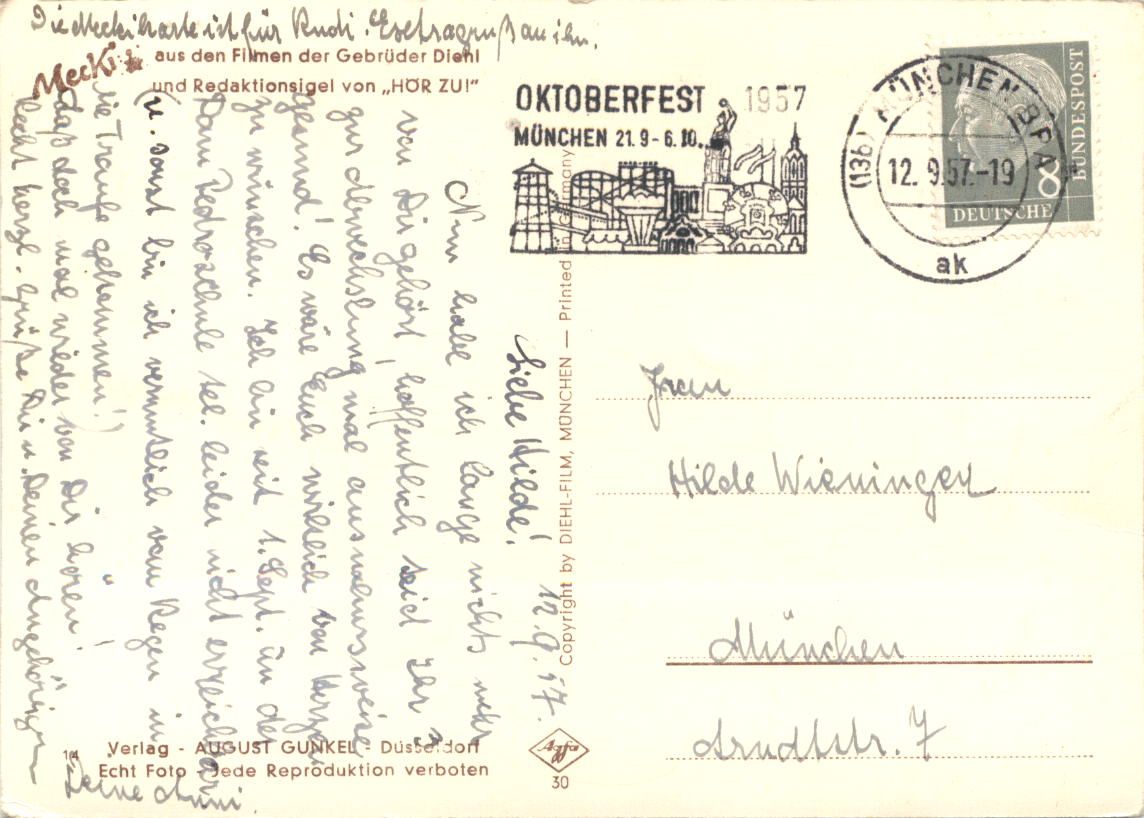 Die Meckikarte ist für Rudi. Extragruß an ihn.
Mecki
aus den Filmen der Gebrüder Diehl
und Redaktionsigel von „HÖR ZU!"
12.9.57.
Liebe Hilde!
Nun habe ich lange nichts mehr
von Dir gehört, hoffentlich seid Ihr
zur Abwechslung mal ausnahmsweise
gesund! Es wäre Euch wirklich von Herzen
zu wünschen. Ich bin seit 1. Sept. in der
Dom Pedroschule tel. leider nicht erreichbar
(u. sonst bin ich vermutlich vom Regen in
die Traufe gekommen!)
Laß doch mal wieder von Dir hören!
Recht herzl. Grüße Dir u. Deinen Angehörigen
Deine Anni.
Verlag - AUGUST GUNKEL - Düsseldorf
Echt Foto - Jede Reproduktion verboten
104
Copyright by DIEHL-FILM, MÜNCHEN — Printed in Germany
Agfa
30
OKTOBERFEST 1957
MÜNCHEN 21.9-6.10.
(13b) MÜNCHEN BPA
12.9.57.-19
ak
8
DEUTSCHE
BUNDESPOST
Frau
Hilde Wieninger
München
Arndtstr. 7